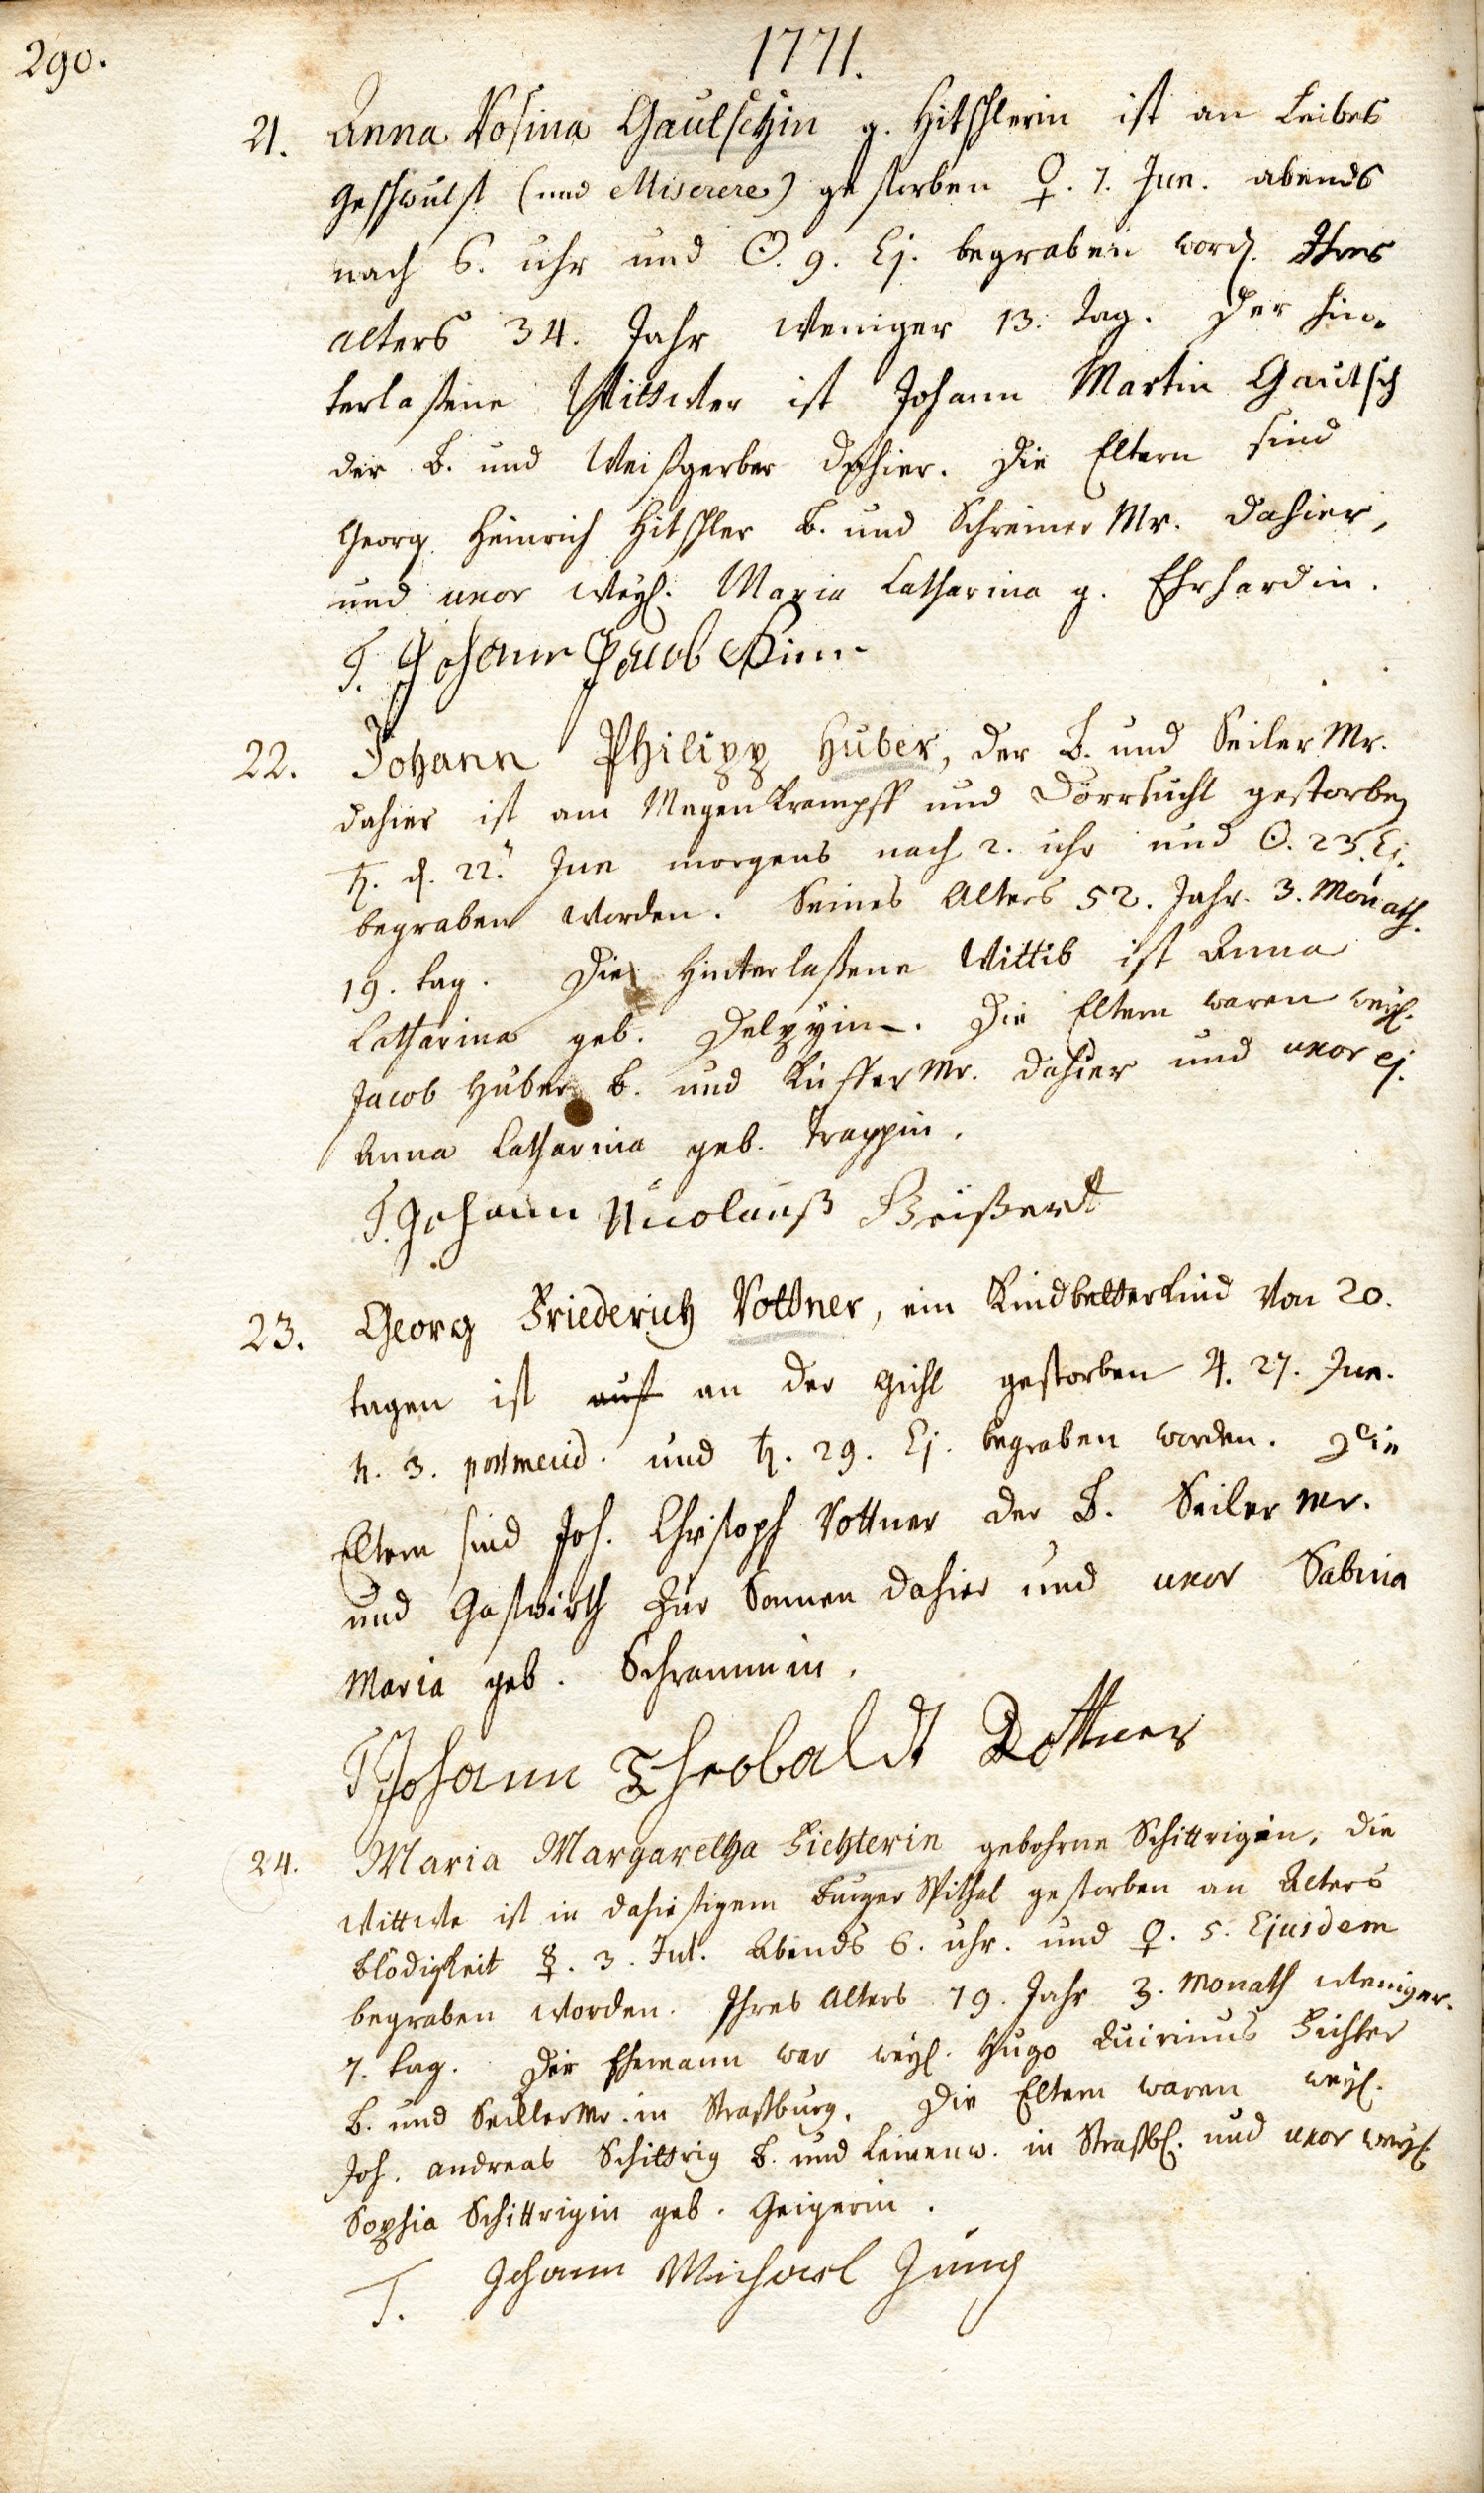 290.
1771.
21. Anna Rosina Gautschin g. Hitschlerin ist an Leibes
geschwulst (und Miserere) gestorben ♀. 7. Jun. abends
nach 6. uhr und ☉. 9. Ej. begraben word. Ihres
alters 34. Jahr weniger 13. tag. Der hin-
terlaßene Wittwer ist Johann Martin Gautsch
der B. und Weißgerber dahier. Die Eltern sind
Georg Heinrich Hitschler B. und Schreiner Mr. dahier,
und uxor weyl. Maria Catharina g. Ehrhardin.
T. Johann Jacob
22. Johann Philipp Huber, der B. und Seiler Mr.
dahier ist am Magen Krampff und Dörrsucht gestorben
♄. d. 22. Jun morgens nach 2. uhr und ☉. 23. Ej.
begraben worden. Seines Alters 52. Jahr. 3. Monath.
19. tag. Die Hinterlaßene Wittib ist Anna
Catharina geb. Delpyin. Die Eltern waren weyl.
Jacob Huber B. und Kieffer Mr. dahier und uxor ej.
Anna Catharina geb. Trappin.
T. Johann Nicolauß Beißerdt
23. Georg Friederich Vottner, ein Kindbetterkind von 20.
tagen ist auf an der Gicht gestorben ♃. 27. Jun.
h. 3. postmerid. und ♄. 29. Ej. begraben worden. Die
Eltern sind Joh. Christoph Vottner der B. Seiler Mr.
und Gastwirth zur Sonnen dahier und uxor Sabina
Maria geb. Schrammin.
T Johann Theobaldt Vottner
24. Maria Margaretha Lichterin gebohrne Schittrigin, die
Wittwe ist in dahiesigem Burger Spithal gestorben an Alters
blödigkeit ☿. 3. Jul. Abends 6. uhr. und ♀. 5. Ejusdem
begraben worden. Ihres Alters 79. Jahr 3. Monath weniger.
7. tag. Der Ehemann war weyl. Hugo Quirinus Lichter
B. und Seckler Mr. in Straßburg. Die Eltern waren weyl.
Joh. Andreas Schittrig B. und Leinenw. in Straßb. und uxor weyl.
Sophia Schittrigin geb. Geigerin.
T. Johann Michael Jung